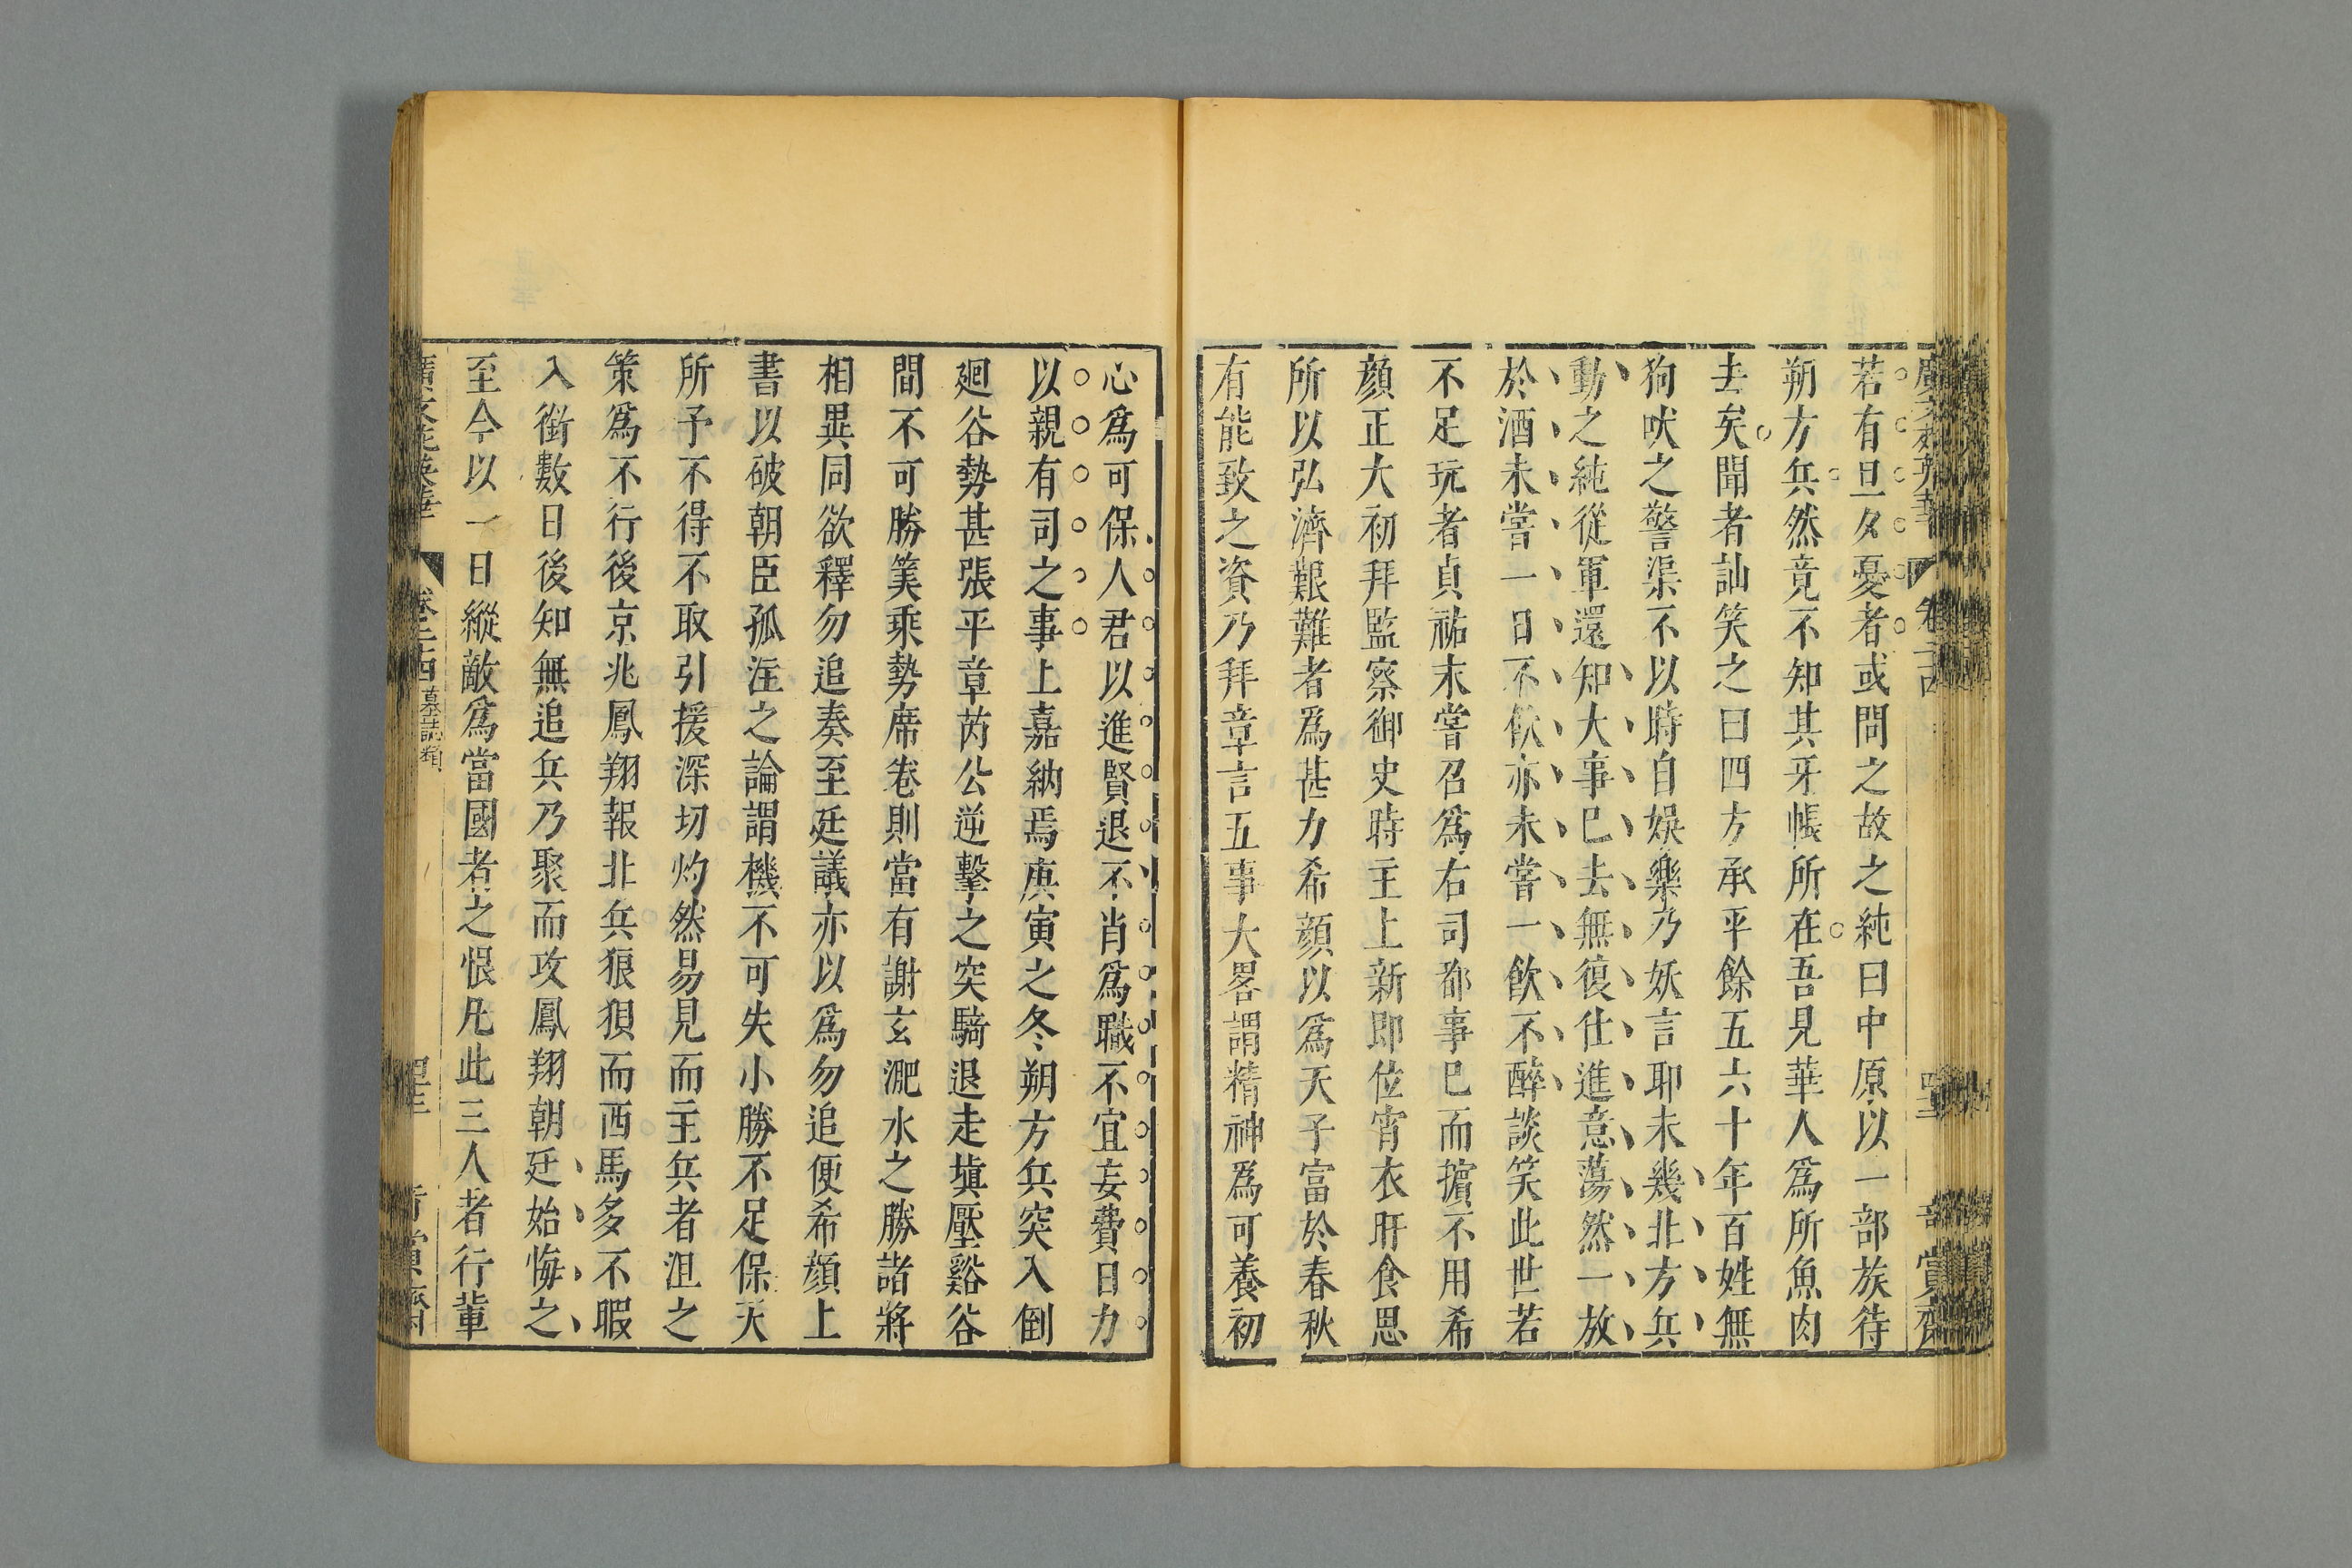 若有旦夕憂者或問之故之純曰中原以一部族待
朔方兵然竟不知其牙帳所在吾見華人爲所魚肉
去矣聞者訕笑之曰四方承平餘五六十年百姓無
狗吠之警渠不以時自娛樂乃妖言耶未幾北方兵
動之純從軍還知大事巳去無復仕進意蕩然一放
於酒未嘗一日不飲亦未嘗一飲不醉談笑此世若
不足玩者貞祐末嘗召爲右司都事巳而擯不用希
顔正大初拜監察御史時主上新即位宵衣旰食思
所以弘濟艱難者爲甚力希顔以爲天子富於春秋
有能致之資乃拜章言五事大畧謂精神爲可養初
心爲可保人君以進賢退不肖爲職不宜妄費日力
以親有司之事上嘉納焉庚寅之冬朔方兵突入倒
廻谷勢甚張平章芮公逆擊之突騎退走塡壓谿谷
間不可勝筭乘勢席卷則當有謝玄淝水之勝諸將
相異同欲釋勿追奏至廷議亦以爲勿追便希顔上
書以破朝臣孤注之論謂機不可失小勝不足保天
所予不得不取引援深切灼然易見而主兵者沮之
策爲不行後京兆鳳翔報北兵狼狽而西馬多不暇
入銜數日後知無追兵乃聚而攻鳳翔朝廷始悔之
至今以一日縱敵爲當國者之恨凡此三人者行輩
廣文苑英華 卷二古 墓誌類